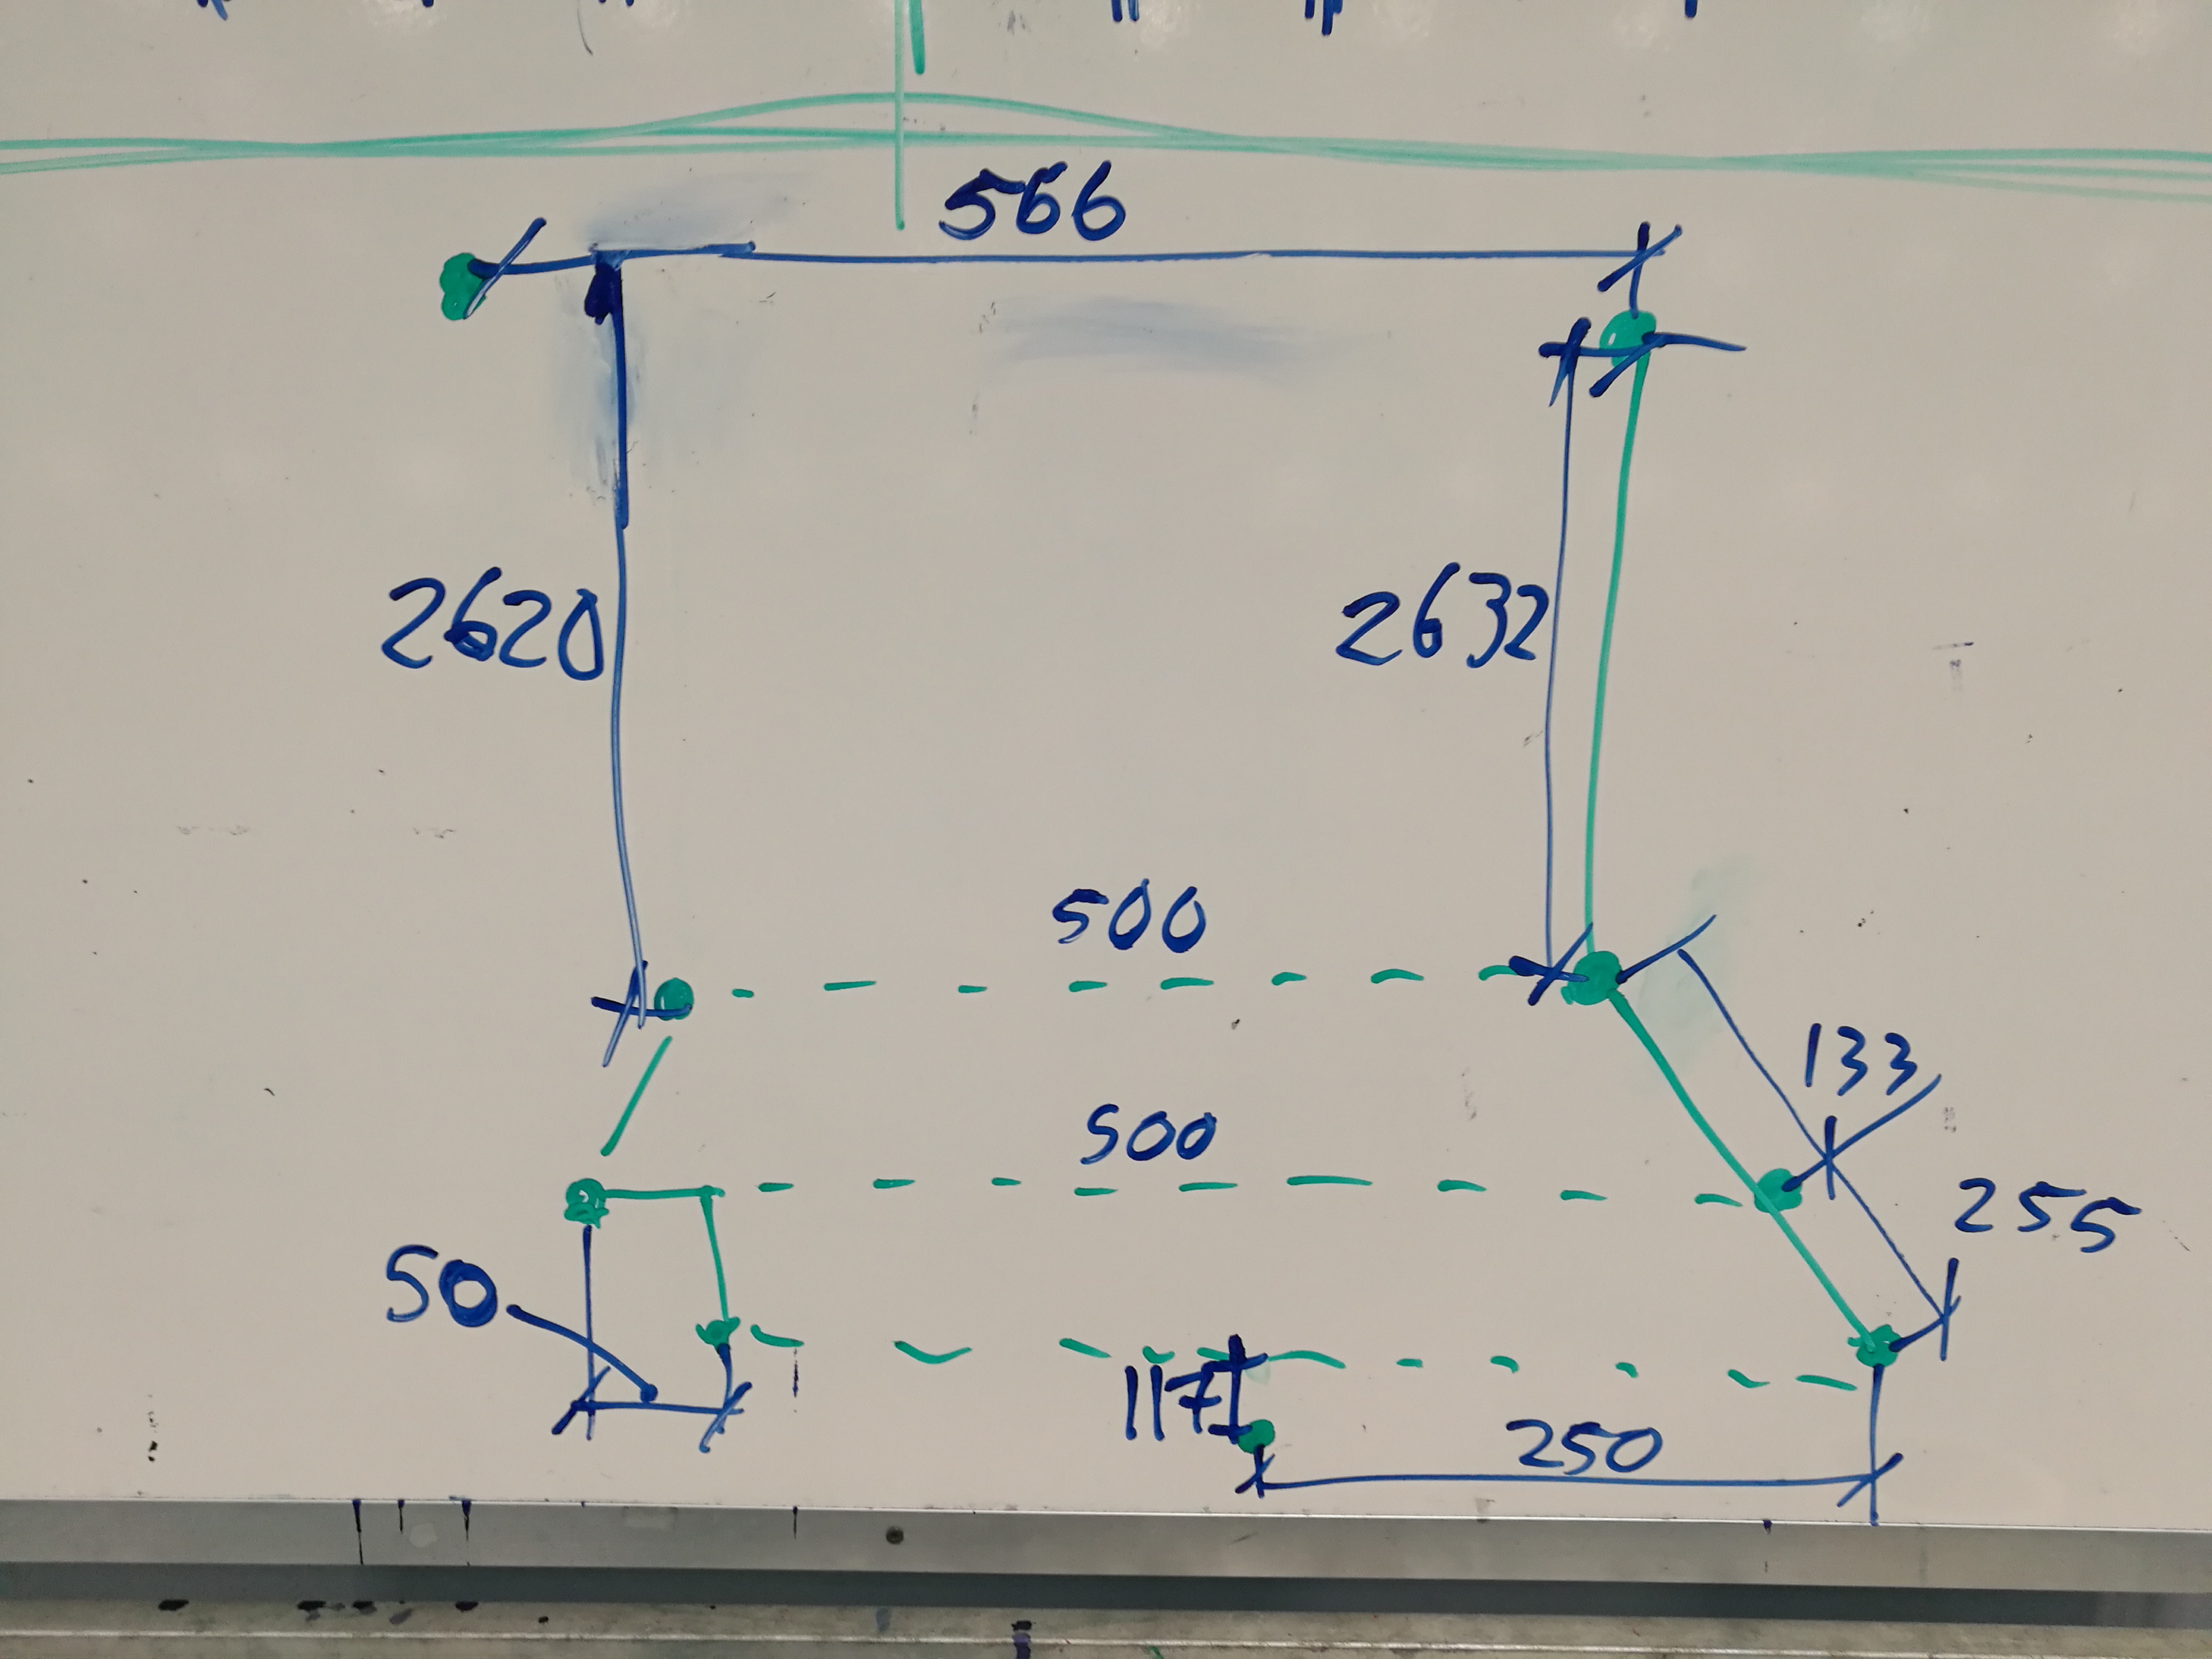 566
2620
2632
500
133
500
255
50
117
250